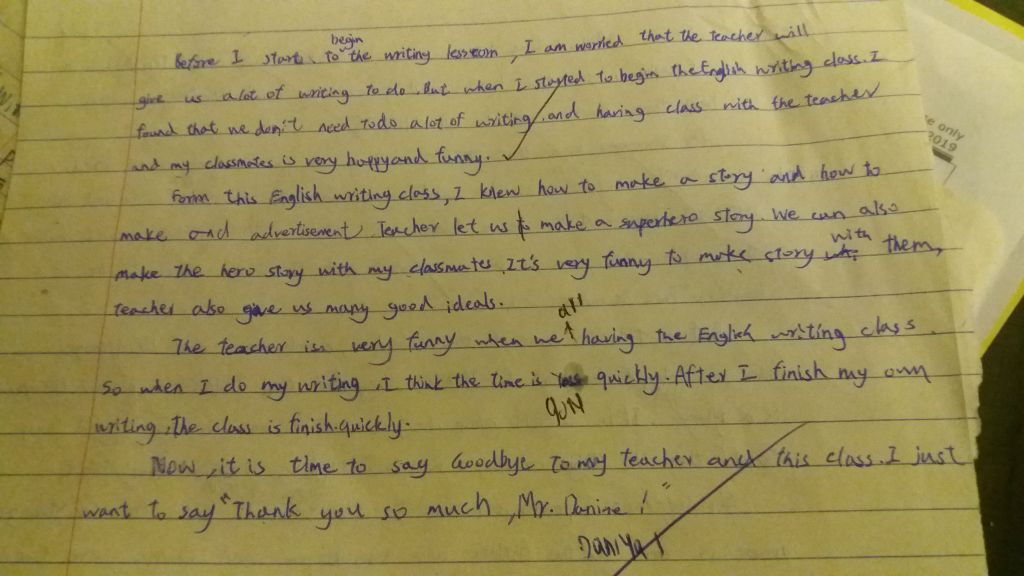 Before I start to begin the writing lesson, I am worried that the teacher will
give us alot of writing to do. But when I started to begin the English writing class. I
found that we don't need todo alot of writing, and having class with the teacher
and my classmates is very happy and funny.
Form this English writing class, I knew how to make a story and how to
make and advertisement. Teacher let us to make a superhero story. We can also
make the hero story with my classmates. It's very funny to make story with them,
teacher also give us many good ideals.
The teacher is very funny when we all having the English writing class.
So when I do my writing, I think the time is quickly. After I finish my own
writing, the class is finish quickly.
Now, it is time to say Goodbye to my teacher and this class. I just
want to say "Thank you so much, Mr. Danine!"
Daniyal
e only
2019